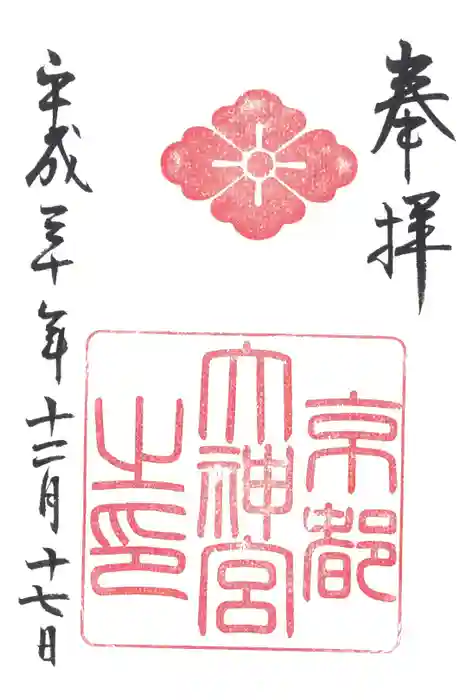 奉拝
京都
大神宮
之印
平成三十年十二月十七日